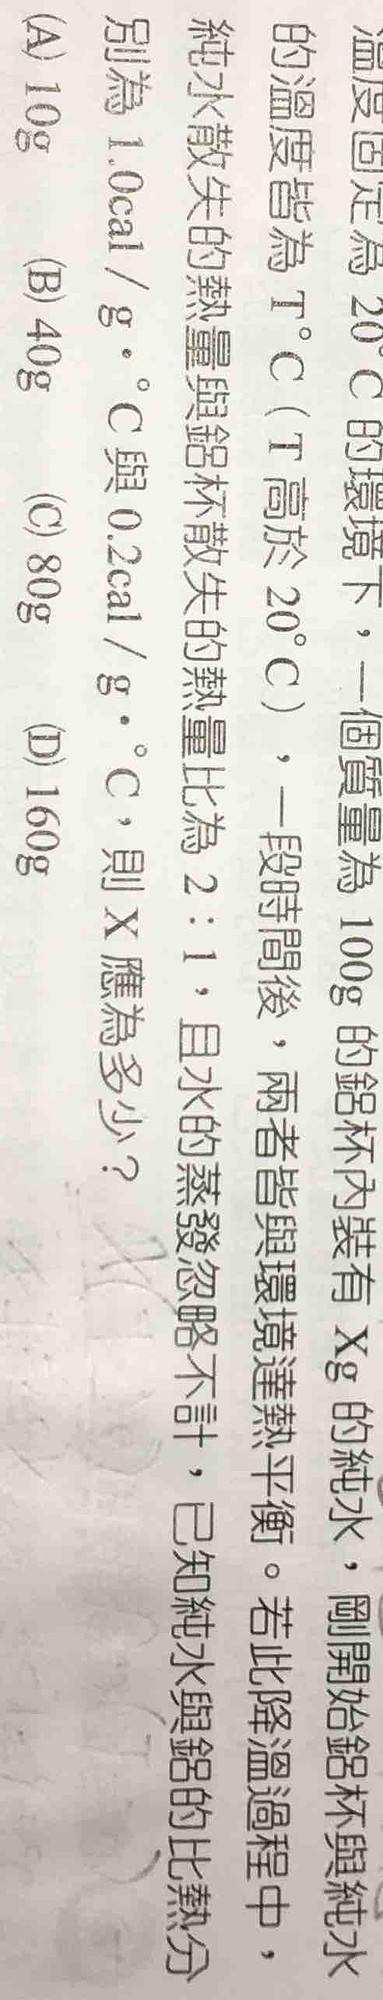 溫度固定為 20°C 的環境下，一個質量為 100g 的鋁杯內裝有 Xg 的純水，剛開始鋁杯與純水
的溫度皆為 T°C（T 高於 20°C），一段時間後，兩者皆與環境達熱平衡。若此降溫過程中，
純水散失的熱量與鋁杯散失的熱量比為 2：1，且水的蒸發忽略不計，已知純水與鋁的比熱分
別為 1.0cal / g·°C 與 0.2cal / g·°C，則 X 應為多少？
(A) 10g (B) 40g (C) 80g (D) 160g